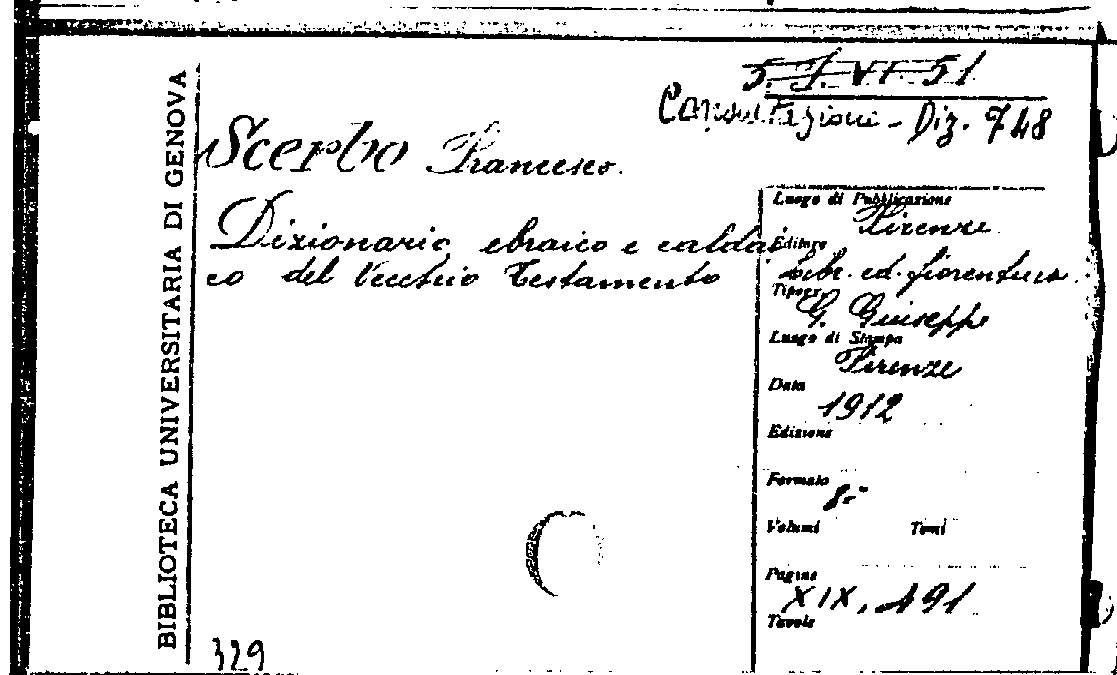 BIBLIOTECA UNIVERSITARIA DI GENOVA
5. J. VI. 51
Consultazione - Diz. 748
Scerbo Francesco.
Dizionario ebraico e caldai
co del Vecchio Testamento
Luogo di Pubblicazione
Firenze
Editore
Libr. ed. fiorentina
Tipogr.
G. Giuseppe
Luogo di Stampa
Firenze
Data
1912
Edizione
Formato
8.
Volumi Tomi
Pagine
XIX, 491
Tavole
329